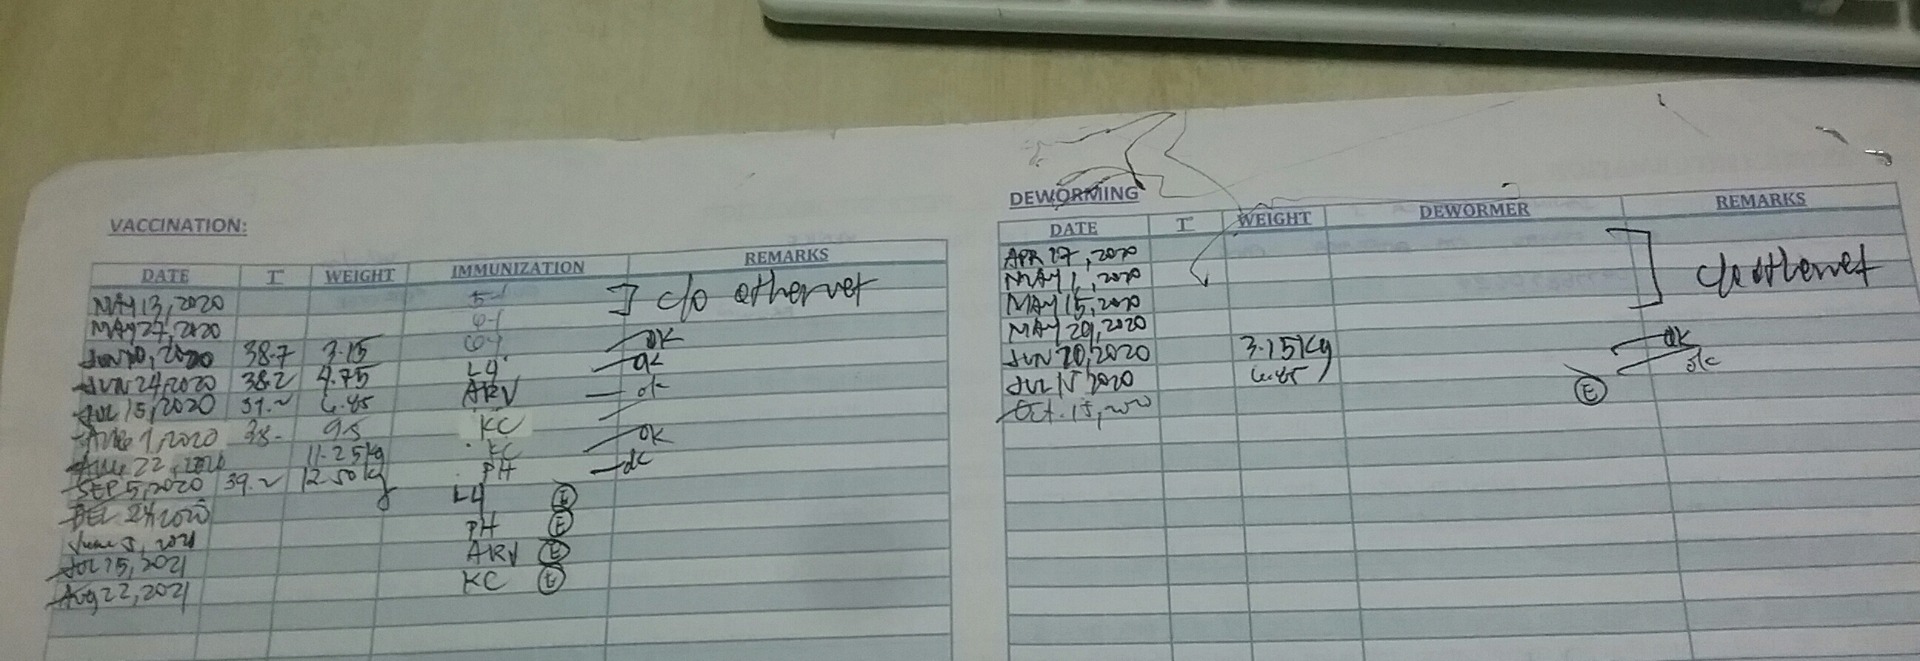 VACCINATION:
DATE T WEIGHT IMMUNIZATION REMARKS
MAY 13, 2020 5-1 c/o othervet
MAY 27, 2020 6-1
JUN 10, 2020 38.7 3.15 6-1 OK
JUN 24, 2020 38.2 4.75 L4 OK
JUL 15, 2020 6.85 ARV ok
AUG 1, 2020 38. 9.5 KC
AUG 22, 2020 11.25kg KC OK
SEP 5, 2020 39.2 12.50kg PH ok
DEC 24, 2020 L4 E
June 5, 2021 PH E
JUL 15, 2021 ARV E
Aug 22, 2021 KC E
DEWORMING
DATE T WEIGHT DEWORMER REMARKS
APR 27, 2020 c/o othervet
MAY 1, 2020
MAY 15, 2020
MAY 29, 2020
JUN 20, 2020 3.15kg OK
JUL 15 2020 6.85 ok
Oct. 15, 2020 E